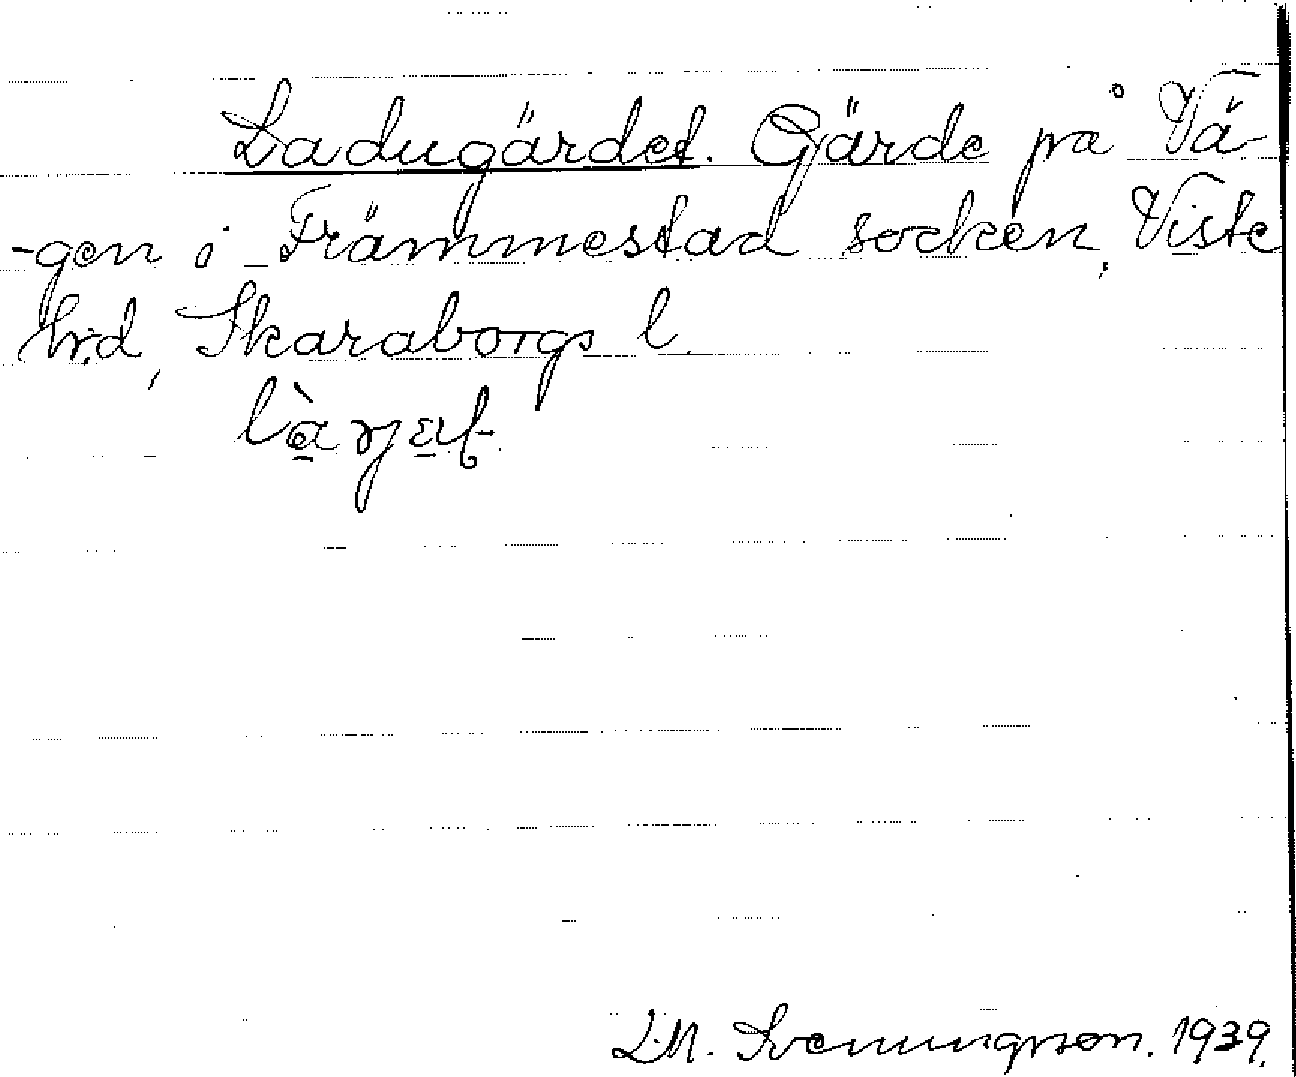 Ladugärdet. Gärde på Vä-
-gen i Främmestad socken, Viste
hrd, Skaraborgs l.
L.M. Svenungsson. 1939.